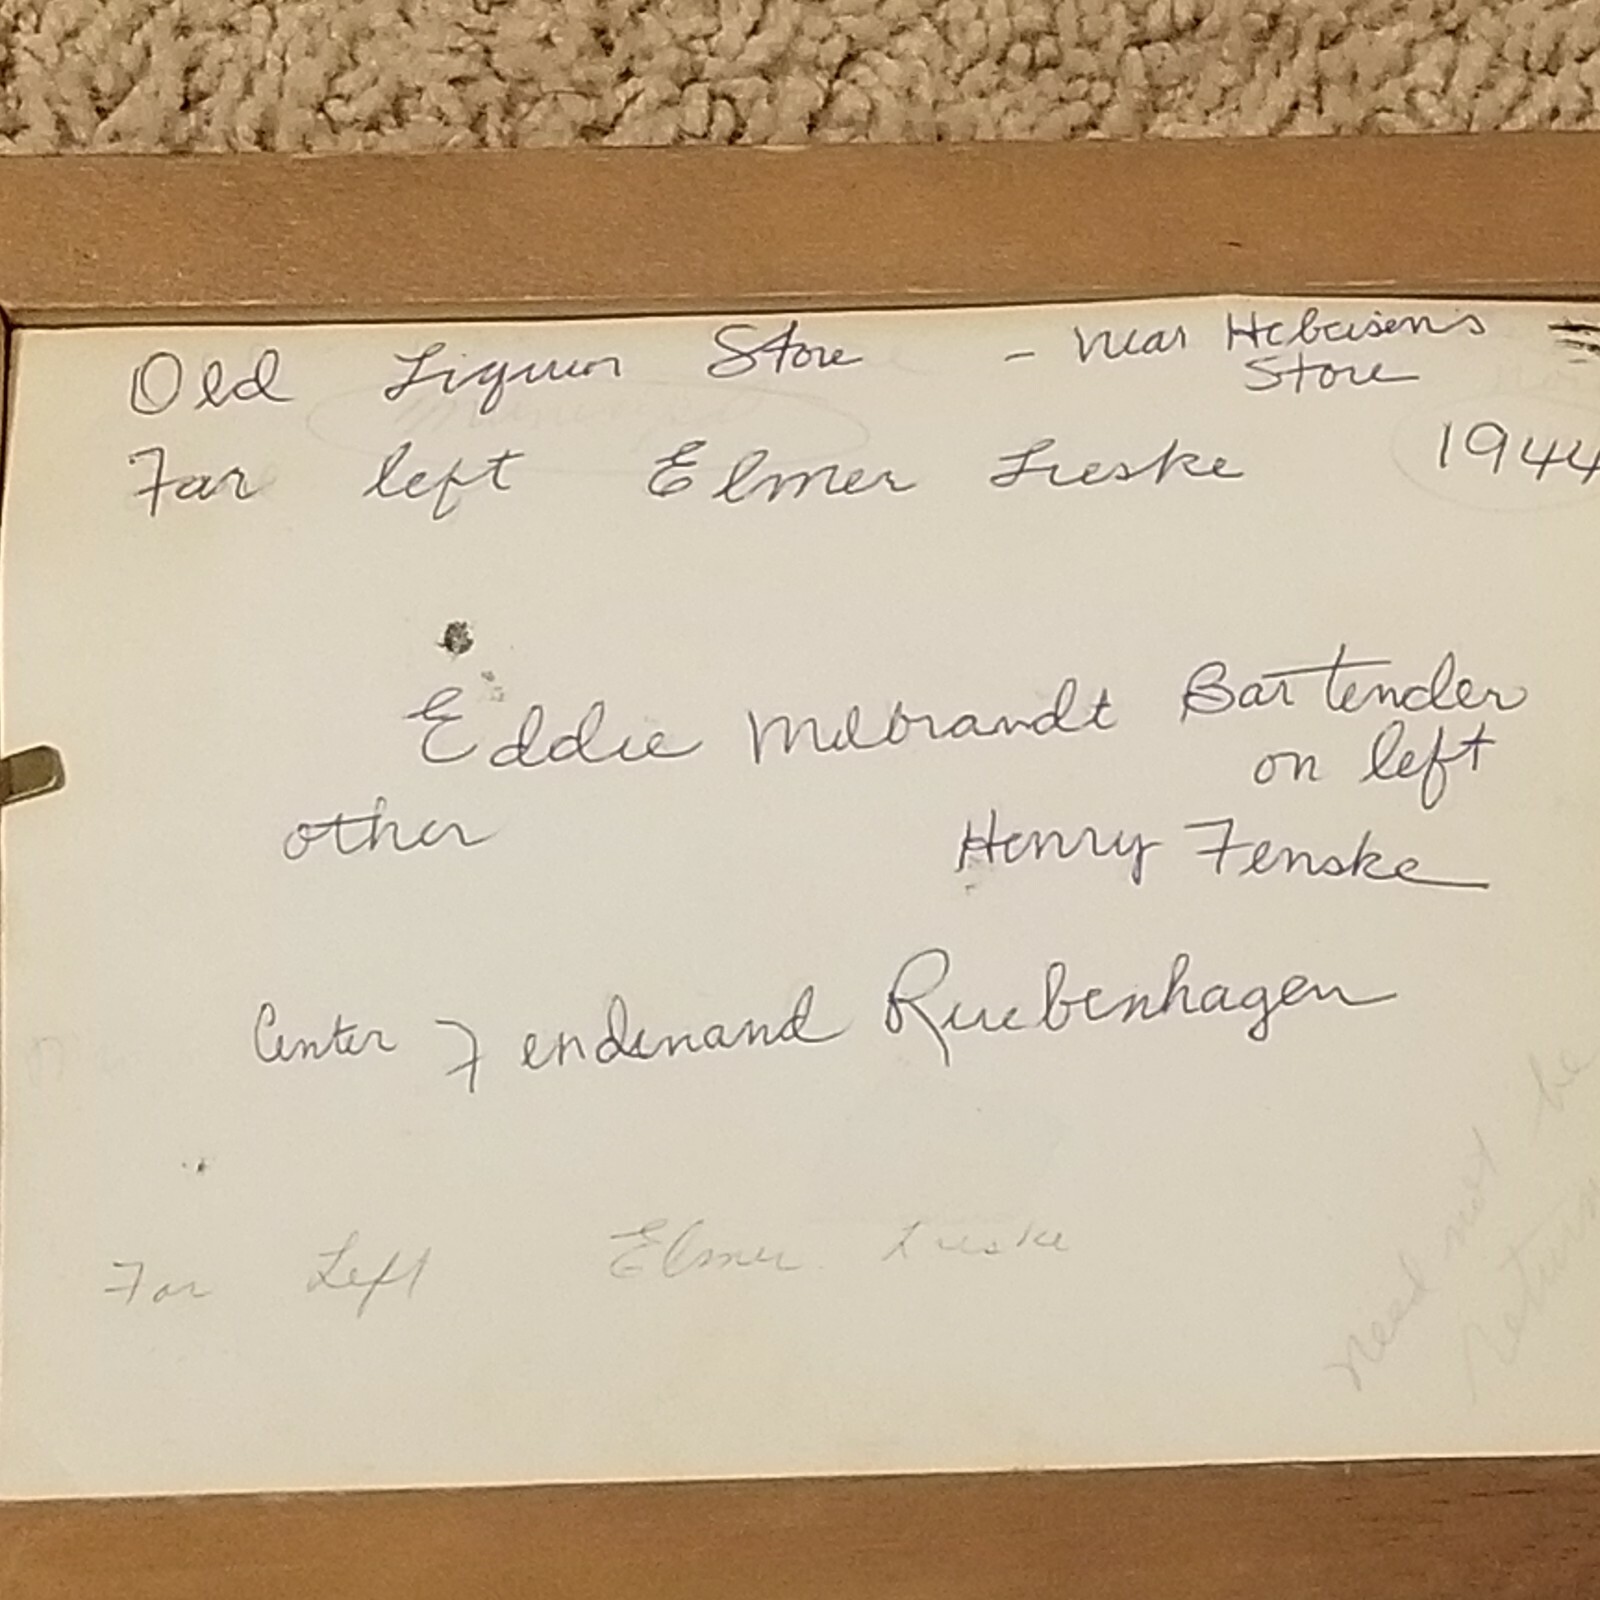 Old Liquor Store - near Hebeisen's
Store
Municipal
Far left Elmer Lieske 1944
Eddie Milbrandt Bartender
on left
other Henry Fenske
Center Ferdinand Ruebenhagen
Far Left Elmer Lieske
need not be
return